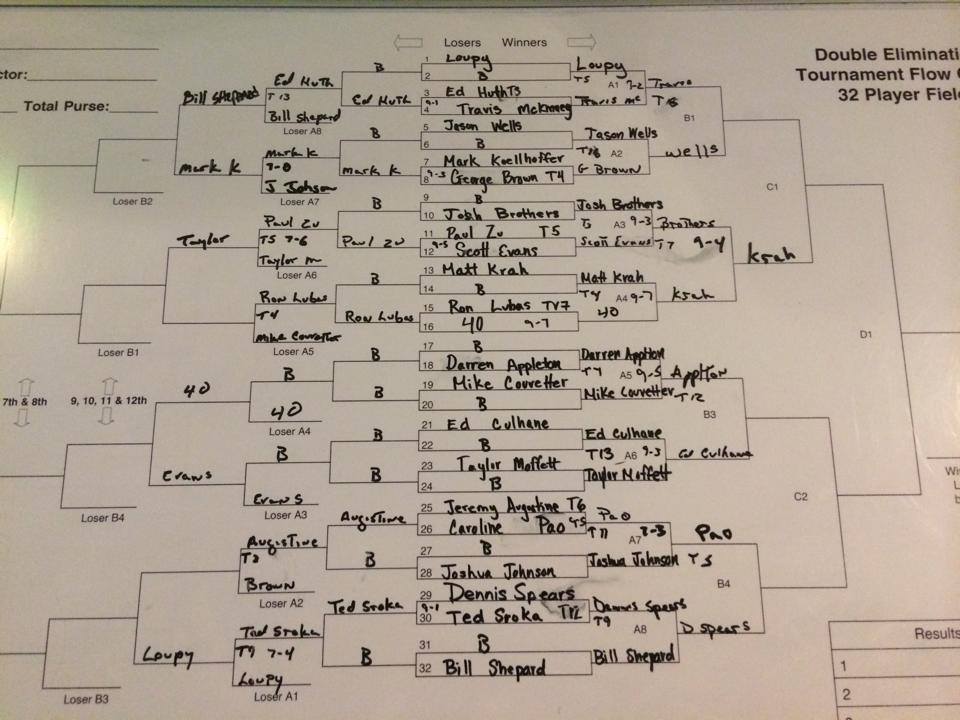 Losers Winners
Double Eliminati
Tournament Flow
32 Player Fiel
ctor:
Total Purse:
1 Loupy
2 B
3 Ed Huth T3
4 9-1 Travis McKinney
5 Jason Wells
6 B
7 Mark Koellhoffer
8 9-3 George Brown T4
9 B
10 Josh Brothers
11 Paul Zu T5
12 9-5 Scott Evans
13 Matt Krah
14 B
15 Ron Lubas TV7
16 40 9-7
17 B
18 Darren Appleton
19 Mike Couvetter
20 B
21 Ed Culhane
22 B
23 Taylor Moffett
24 B
25 Jeremy Augustine T6
26 Caroline Pao T5
27 B
28 Joshua Johnson
29 Dennis Spears
30 9-1 Ted Sroka T12
31 B
32 Bill Shepard
Loupy
T5 A1 7-2
Travis Mc
Jason Wells
T16 A2
G Brown
Josh Brothers
A3 9-3
Scott Evans
Matt Krah
T4 A4 9-7
40
Darren Applton
A5 9-5
Mike Couvetter
Ed Culhane
T13 A6 9-3
Taylor Moffett
Pao
T11 A7
Joshua Johnson
Dennis Spears
T9 A8
Bill Shepard
Travis
B1
Wells
Brothers
T7 9-4
Krah
Applton
T12 B3
Ed Culhane
Pao
T5
B4
D Spears
C1
Krah
C2
D1
B
Ed Huth
B
Mark K
B
Paul Zu
B
Ron Lubas
B
B
B
B
Augustine
B
Ted Sroka
B
Ed Huth
T13
Bill Shepard
Loser A8
Mark K
7-0
J Johson
Loser A7
Paul Zu
T5 7-6
Taylor M
Loser A6
Ron Lubas
T4
Mike Couvetter
Loser A5
B
40
Loser A4
B
Evans
Loser A3
Augistine
Brown
Loser A2
Ted Sroka
T9 7-4
Loupy
Loser A1
Bill Shepard
Mark K
Taylor
40
Evans
Loupy
Loser B2
Loser B1
Loser B4
Loser B3
7th & 8th
9, 10, 11 & 12th
Results
1
2